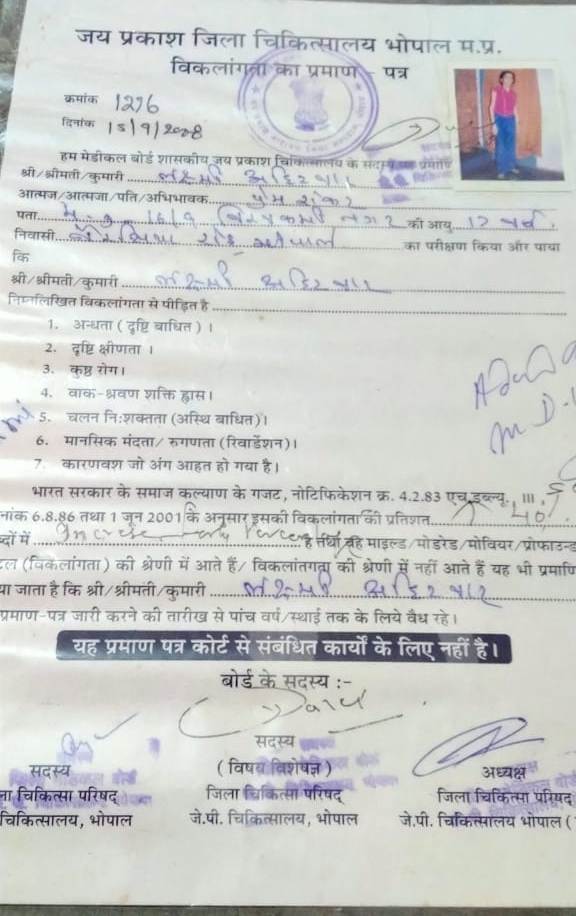 जय प्रकाश जिला चिकित्सालय भोपाल म.प्र.
विकलांगता का प्रमाण - पत्र
क्रमांक 1276
दिनांक 15/9/2008
हम मेडीकल बोर्ड शासकीय जय प्रकाश चिकित्सालय के सदस्य प्रमाणि
श्री/श्रीमती/कुमारी लक्ष्मी अहिरवार
आत्मज/आत्मजा/पति/अभिभावक प्रेम शंकर
पता म.न. 16/9 विश्वकर्मा नगर की आयु 17 वर्ष
निवासी बैरसिया रोड भोपाल का परीक्षण किया और पाया
कि
श्री/श्रीमती/कुमारी लक्ष्मी अहिरवार
निम्नलिखित विकलांगता से पीड़ित है
1. अन्धता ( दृष्टि बाधित ) ।
2. दृष्टि क्षीणता ।
3. कुष्ठ रोग।
4. वाक-श्रवण शक्ति ह्रास।
5. चलन निःशक्तता (अस्थि बाधित)।
6. मानसिक मंदता/ रुगणता (रिटार्डेशन)।
7. कारणवश जो अंग आहत हो गया है।
भारत सरकार के समाज कल्याण के गजट, नोटिफिकेशन क्र. 4.2.83 एच.डब्ल्यू. III.
नांक 6.8.86 तथा 1 जून 2001 के अनुसार इसकी विकलांगता की प्रतिशत 40%
ब्दों में है तथा वह माइल्ड/मोडरेड/मोवियर/प्रोफाउन्ड
टल (विकलांगता) की श्रेणी में आते हैं/ विकलांतगता की श्रेणी में नहीं आते हैं यह भी प्रमाणि
या जाता है कि श्री/श्रीमती/कुमारी लक्ष्मी अहिरवार
प्रमाण-पत्र जारी करने की तारीख से पांच वर्ष/स्थाई तक के लिये वैध रहे।
यह प्रमाण पत्र कोर्ट से संबंधित कार्यों के लिए नहीं है।
बोर्ड के सदस्य :-
सदस्य
( विषय विशेषज्ञ )
जिला चिकित्सा परिषद्
जे.पी. चिकित्सालय, भोपाल
सदस्य
ला चिकित्सा परिषद्
चिकित्सालय, भोपाल
अध्यक्ष
जिला चिकित्सा परिषद्
जे.पी. चिकित्सालय भोपाल (